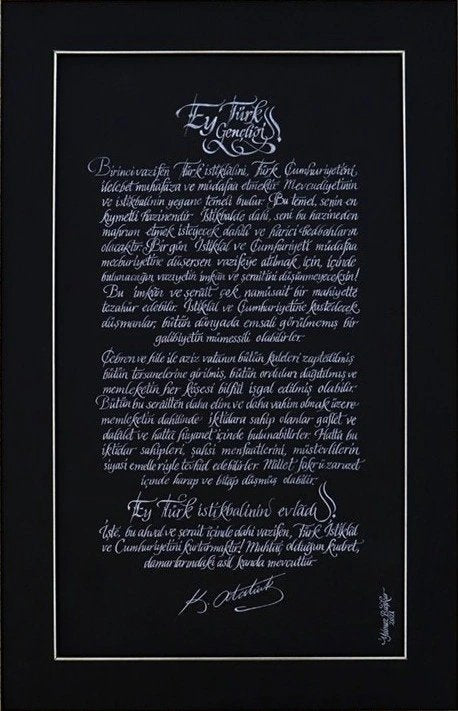 Ey Türk
Gençliği!
Birinci vazifen Türk istiklâlini, Türk Cumhuriyetini,
ilelebet muhafaza ve müdafaa etmektir. Mevcudiyetinin
ve istikbalinin yegane temeli budur. Bu temel, senin en
kıymetli hazinendir. İstikbalde dahi, seni bu hazineden
mahrum etmek isteyecek dahili ve harici bedhahların
olacaktır. Bir gün İstiklâl ve Cumhuriyeti müdafaa
mecburiyetine düşersen vazifeye atılmak için, içinde
bulunacağın vaziyetin imkân ve şeraitini düşünmeyeceksin!
Bu imkân ve şerait çok namüsait bir mahiyette
tezahür edebilir. İstiklâl ve Cumhuriyetine kastedecek
düşmanlar, bütün dünyada emsali görülmemiş bir
galibiyetin mümessili olabilirler.
Cebren ve hile ile aziz vatanın bütün kaleleri zaptedilmiş
bütün tersanelerine girilmiş, bütün orduları dağıtılmış ve
memleketin her köşesi bilfiil işgal edilmiş olabilir.
Bütün bu şeraitten daha elim ve daha vahim olmak üzere
memleketin dahilinde iktidara sahip olanlar gaflet ve
dalâlet ve hatta hıyanet içinde bulunabilirler. Hatta bu
iktidar sahipleri, şahsi menfaatlerini, müstevlilerin
siyasi emelleriyle tevhid edebilirler. Millet fakrü zaruret
içinde harap ve bitap düşmüş olabilir.
Ey Türk istikbalinin evladı!
İşte, bu ahval ve şerait içinde dahi vazifen, Türk İstiklâl
ve Cumhuriyetini kurtarmaktır! Muhtaç olduğun kudret,
damarlarındaki asil kanda mevcuttur.
K. Atatürk